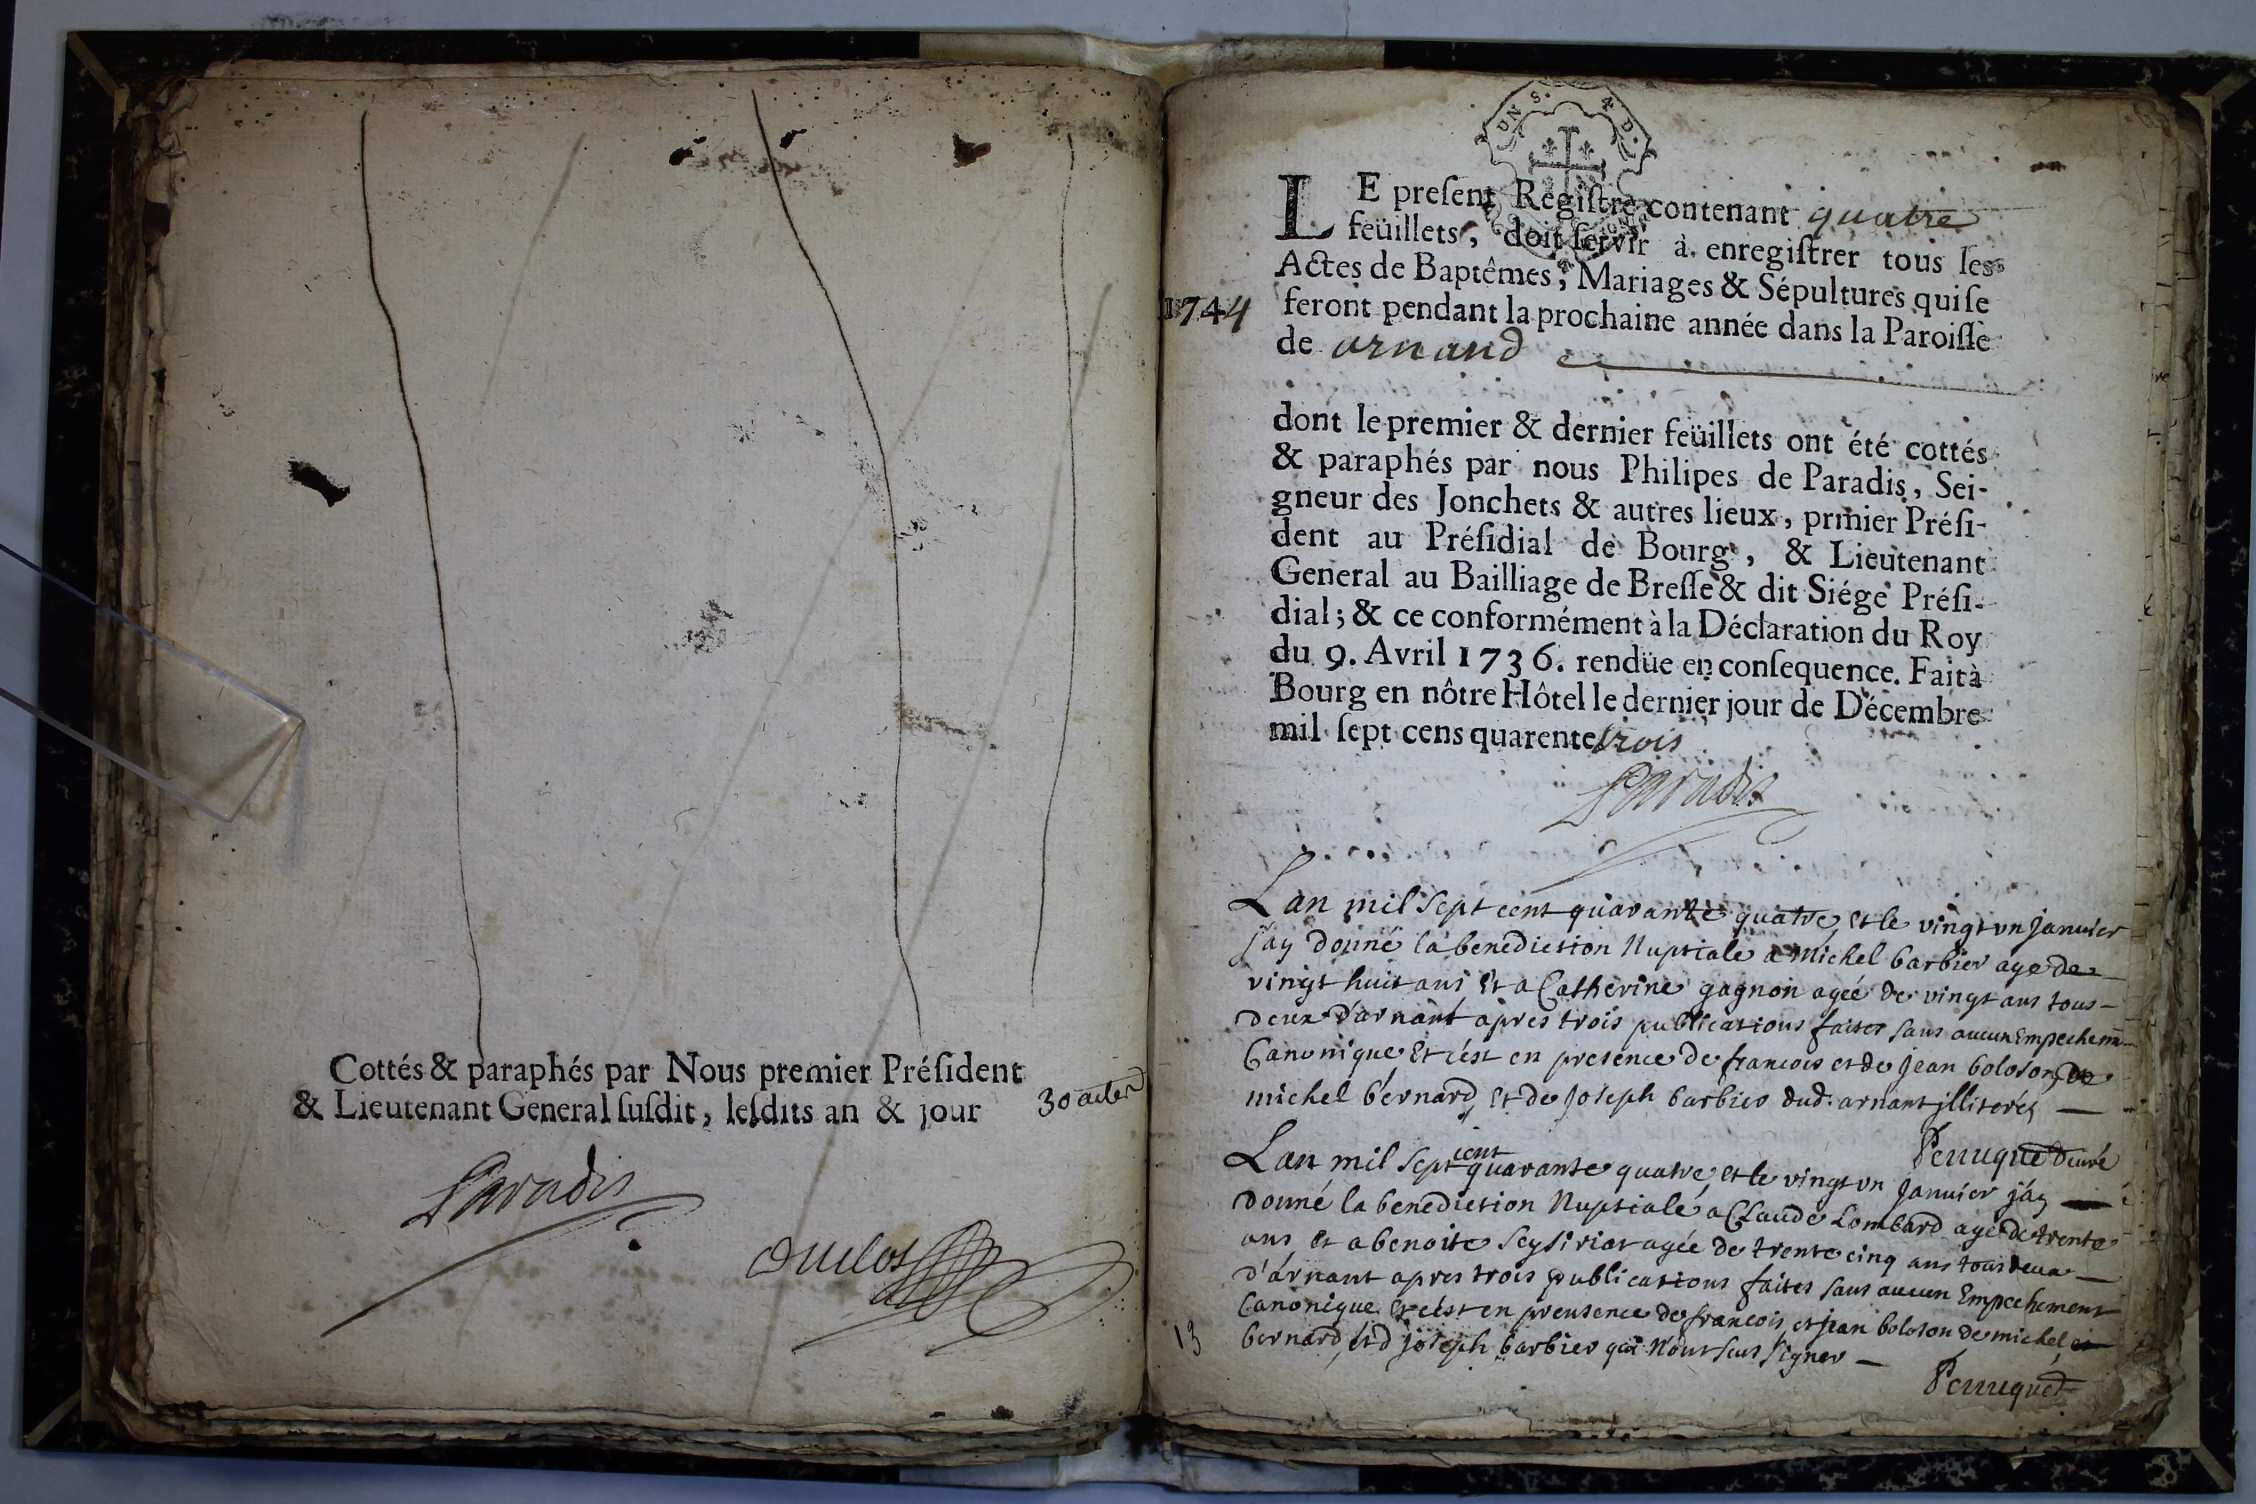 Cottés & paraphés par Nous premier Préſident
& Lieutenant General ſuſdit, leſdits an & jour
30 actes
Paradis
Duclos
UN S. 4 D.
LE preſent Regiſtre contenant quatre
feüillets, doit ſervir à enregiſtrer tous les
Actes de Baptêmes, Mariages & Sépultures qui ſe
1744
feront pendant la prochaine année dans la Paroiſſe
de arnand
dont le premier & dernier feüillets ont été cottés
& paraphés par nous Philipes de Paradis, Sei-
gneur des Jonchets & autres lieux, prmier Préſi-
dent au Préſidial de Bourg, & Lieutenant
General au Bailliage de Breſſe & dit Siége Préſi-
dial; & ce conformément à la Déclaration du Roy
du 9. Avril 1736. rendüe en conſequence. Fait à
Bourg en nôtre Hôtel le dernier jour de Décembre
mil ſept cens quarente trois
Paradis
Lan mil sept cent quarante quatre et le vingt vn janvier
jay donné la benediction Nuptiale a michel barbier age de
vingt huit ans Et a Catherine gagnon agée de vingt ans tous
deux d'arnant apres trois publications faites sans aucun Empechem
Canonique Et c'est en presence de francois et de jean boloson de
michel bernard et de Joseph barbier dud. arnant jlliterés
Perruquet curé
Lan mil sept cent quarante quatre et le vingt vn janvier j'ay
donné la benediction Nuptiale a Claude Lombard age de trente
ans et a benoite seysiriat agée de trente cinq ans tous deux
d'arnant apres trois publications faites sans aucun Empechement
Canonique et c'est en preusence de francois et jean boloson de michel
bernard, et d joseph barbier qui n'ont sus signer
13
Perruquet